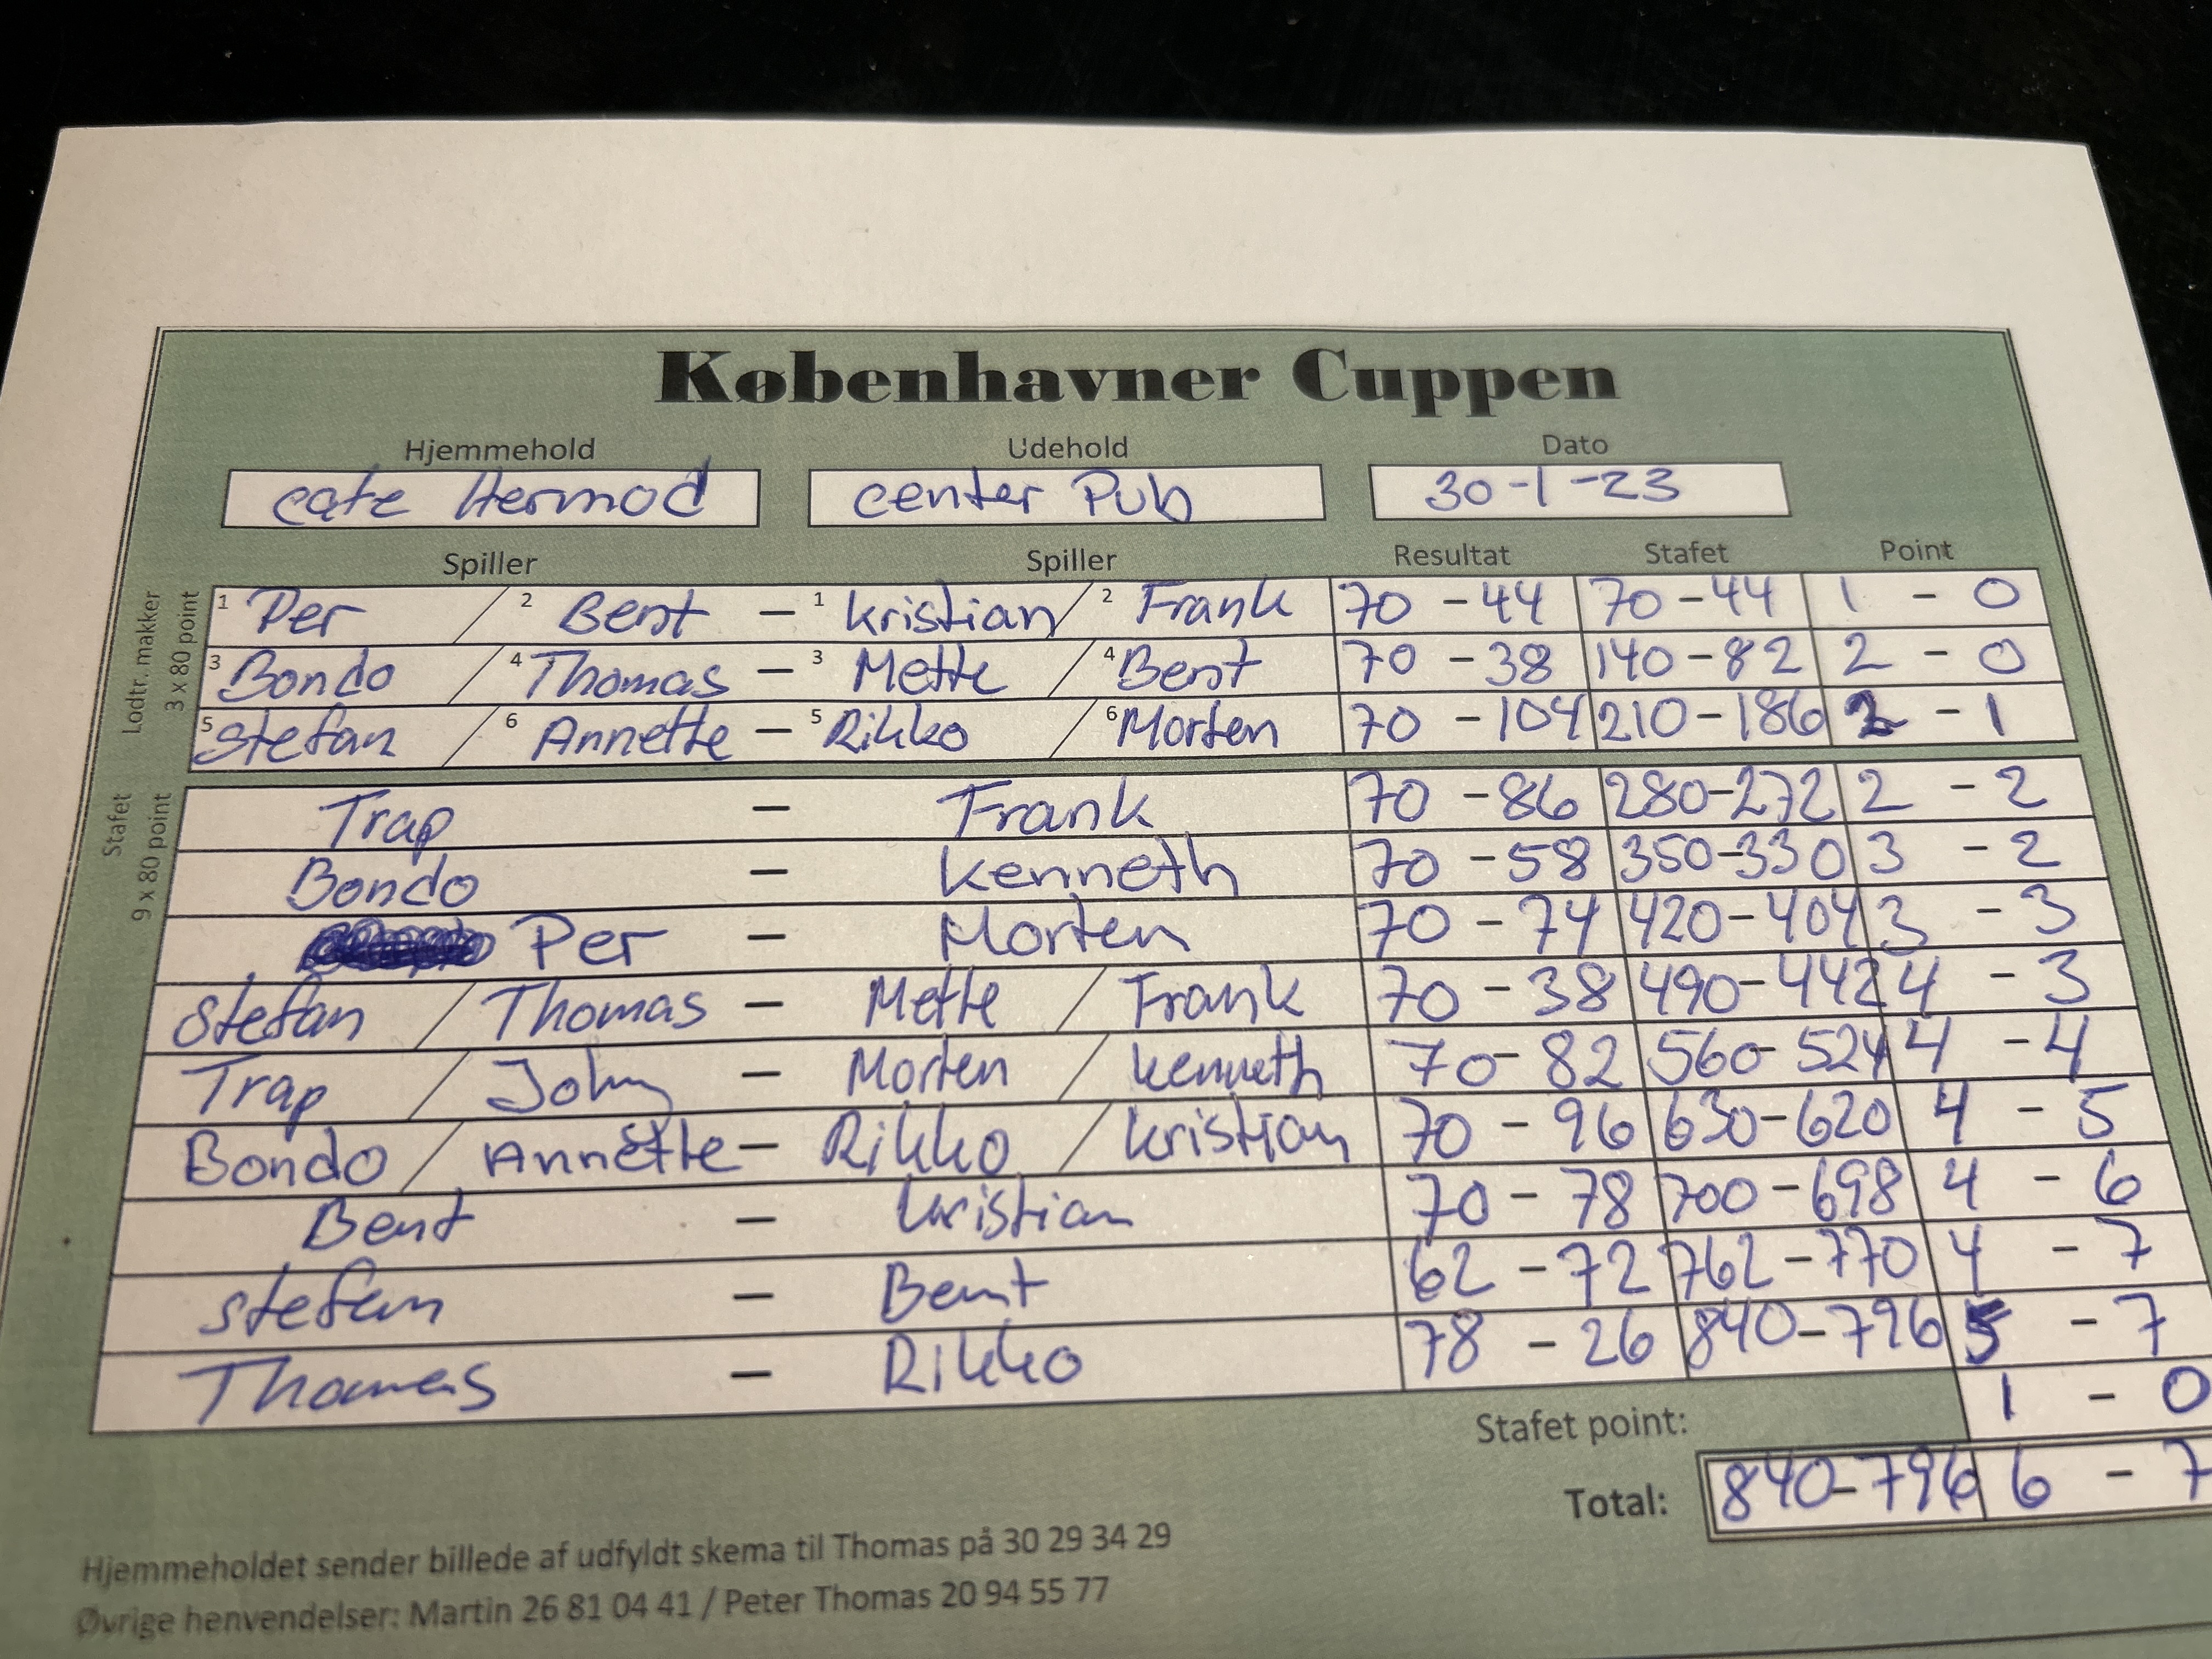 Københavner Cuppen
Hjemmehold Udehold Dato
cafe Hermod center Pub 30-1-23
Spiller Spiller Resultat Stafet Point
Lodtr. makker
3 x 80 point
1 Per / 2 Bent - 1 Kristian / 2 Frank 70 - 44 70 - 44 1 - 0
3 Bondo / 4 Thomas - 3 Mette / 4 Bent 70 - 38 140 - 82 2 - 0
5 Stefan / 6 Annette - 5 Rikko / 6 Morten 70 - 104 210 - 186 2 - 1
Stafet
9 x 80 point
Trap - Frank 70 - 86 280 - 272 2 - 2
Bondo - Kenneth 70 - 58 350 - 330 3 - 2
Per - Morten 70 - 74 420 - 404 3 - 3
Stefan / Thomas - Mette / Frank 70 - 38 490 - 442 4 - 3
Trap / John - Morten / Kenneth 70 - 82 560 - 524 4 - 4
Bondo / Annette - Rikko / Kristian 70 - 96 630 - 620 4 - 5
Bent - Kristian 70 - 78 700 - 698 4 - 6
Stefan - Bent 62 - 72 762 - 770 4 - 7
Thomas - Rikko 78 - 26 840 - 796 5 - 7
Stafet point: 1 - 0
Total: 840 - 796 6 - 7
Hjemmeholdet sender billede af udfyldt skema til Thomas på 30 29 34 29
Øvrige henvendelser: Martin 26 81 04 41 / Peter Thomas 20 94 55 77